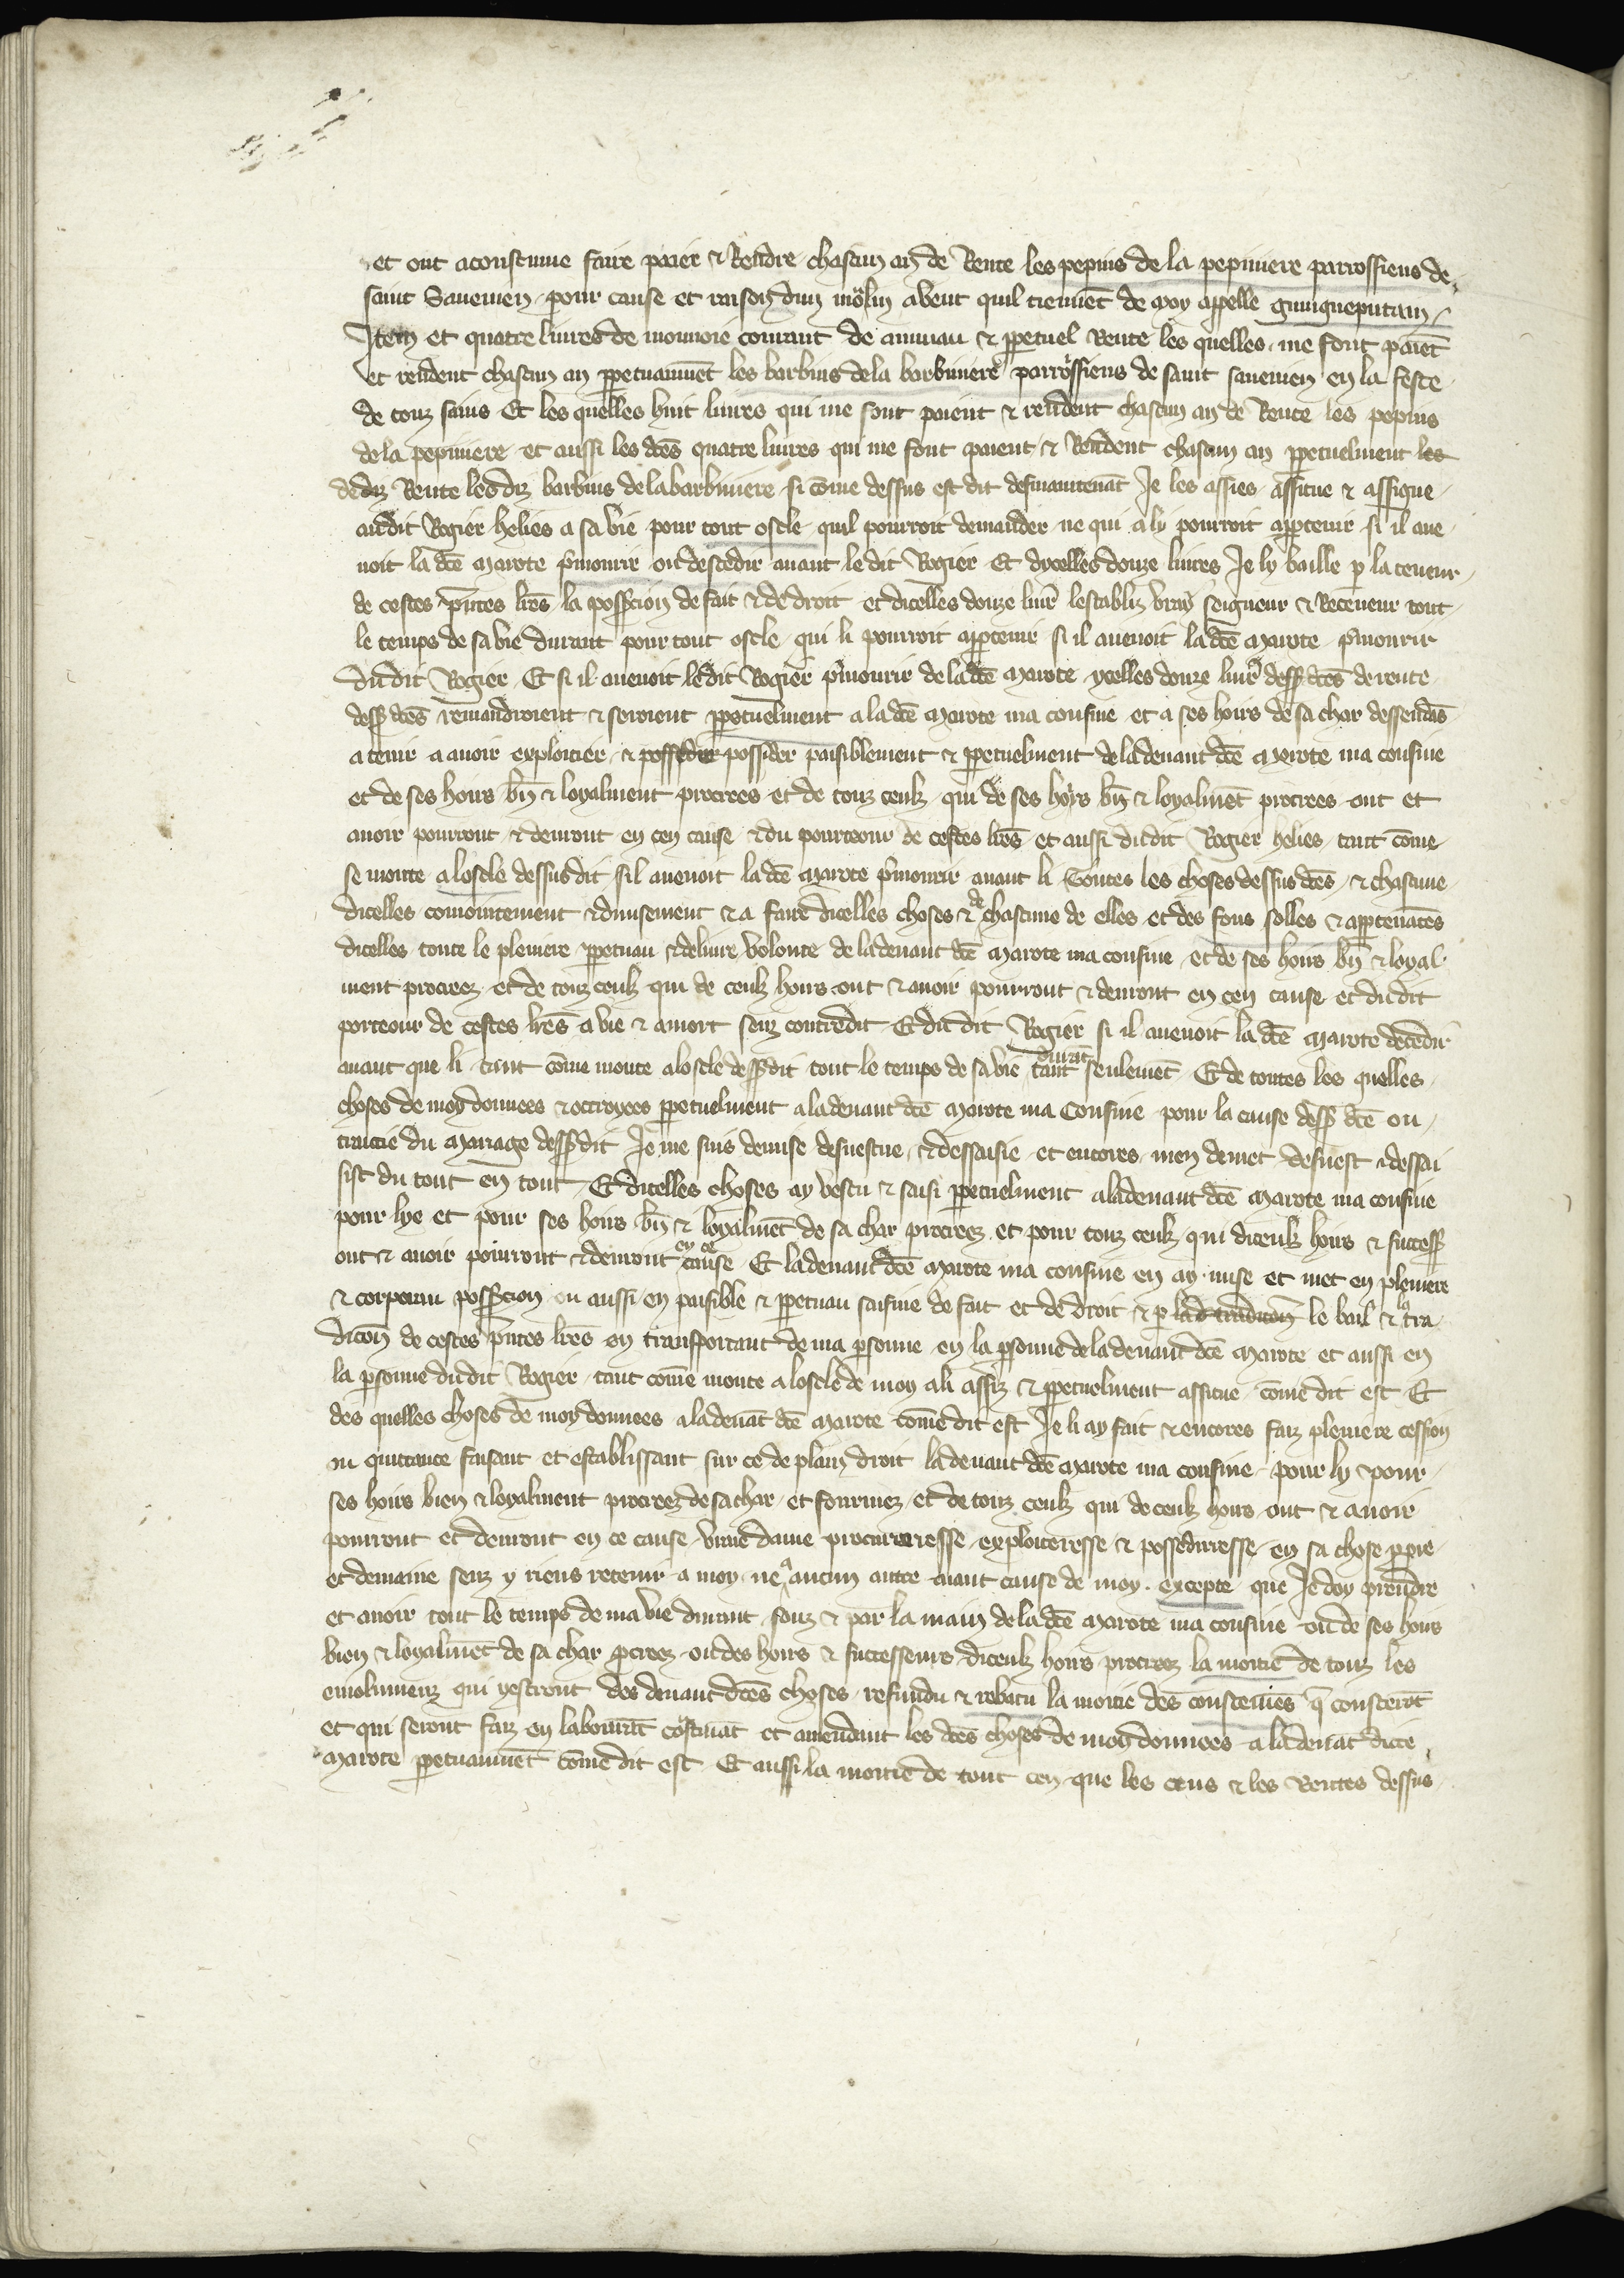 et ont acoustume faire paier & Rendre chascun an de Rente les pepins de la pepiniere parrossiens de
saint Sauenien pour cause et raison dun molin abent quil tienēt de moy appelle guingueputain
Item et quatre liures de monnoie courant de annuau & ꝑpetuel Rente les quelles me font paiēt
et rendent chascun an ꝑpetuaumēt les barbins de la barbiniere parrossiens de saint sauenien en la feste
de touz sains Et les quelles huit liures qui me sont paient & rendent chascun an de Rente les pepins
de la pepiniere et aussi les dc̄es quatre liures qui me font paient & Rendent chascun an ꝑpetuelment les
dc̄diz Rente les diz barbins de la barbiniere si cōme dessus est dit desmaintenāt Je les assies assitue & assigne
audit Rogier helies a sa vie pour tout oscle quil pourroit demander ne qui a ly pourroit aꝑptenir si il aue
noit la dc̄e Marote p̄mourir ou descedir auant le dit Rogier Et dycelles douze liures Je ly baille ꝑ la teneur
de cestes p̄ntes lr̄es la poss̄cion de fait & de droit et dicelles douze liur̄ lestabliz vray seigneur & Receueur tout
le temps de sa vie durant pour tout oscle qui li pourroit aꝑptenir si il auenoit la dc̄e Marote p̄mourir
du dit Rogier Et si il auenoit le dit Rogier p̄mourir de la dc̄e Marote ycelles douze liur̄ dess̄ dc̄es de rente
dess̄ dc̄es remaindroient & seroient ꝑpetuelment a la dc̄e Marote ma cousine et a ses hoirs de sa char dessendās
a tenir a auoir exploicier & possedir possider paisiblement & ꝑpetuelment de la deuant dc̄e Marote ma cousine
et de ses hoirs bn̄ & loyalment procrees et de touz ceulx qui de ses hoyrs bn̄ & loyalmēt procrees ont et
auoir pourront & deuront en cen cause & du pourteour de cestes lr̄es et aussi dudit Rogier helies tant cōme
se monte a loscle dessus dit sil auenoit la dc̄e Marote p̄mourir auant li Toutes les choses dessus dc̄es & chascune
dicelles coniointement & diuisement & a faire dicelles choses & de chascune de elles et des fons solles & aꝑptenāces
dicelles toute le pleniere ꝑpetuau & deliure volonte de la deuant dc̄e Marote ma cousine et de ses hoirs bn̄ & loyal
ment procreez et de touz ceulx qui de ceulx hoirs ont & auoir pourront & deuront en cen cause et du dit
porteour de cestes lr̄es a vie & a mort senz contredit Et du dit Rogier si il auenoit la dc̄e Marote decedir
auant que li tant cōme monte a loscle dess̄ dit tout le temps de sa vie durāt tant seulemēt Et de toutes les quelles
choses de moy donnees & octroyees ꝑpetuelment a la deuant dc̄e Marote ma Cousine pour la cause dess̄ dc̄e ou
traictie du mariage dess̄ dit Je me suis demise desuestue & dessaisie et encores men demet desuest & dessai
sist du tout en tout Et dicelles choses ay vestu & saisi ꝑpetuelment a la deuant dc̄e Marote ma cousine
pour lye et pour ses hoirs bn̄ & loyalmēt de sa char procreez et pour touz ceulx qui diceulx hoirs & success̄
ont & auoir pourront & deuront en ce cause Et la deuant dc̄e Marote ma cousine en ay mise et met en pleniere
& corporau poss̄cion ou aussi en paisible & ꝑpetuau saisine de fait et de droit & ꝑ lad tradicōn le bail & la tra
dicōn de cestes p̄ntes lr̄es en transportant de ma ꝑsonne en la ꝑsonne de la deuant dc̄e Marote et aussi en
la ꝑsonne du dit Rogier tant cōme monte a loscle de moy ali assiz & ꝑpetuelment assitue cōme dit est Et
des quelles choses de moy donnees a la deuāt dc̄e Marote cōme dit est Je li ay fait & encores faiz pleniere cession
ou quictance faisant et establissant sur ce de plain droit la deuant dc̄e Marote ma cousine pour ly & pour
ses hoirs bien & loyalment procreez de sa char et fourmez et de touz ceulx qui de ceulx hoirs ont & auoir
pourront et deuront en ce cause vraie dame procurarresse exploiteresse & possedirresse en sa chose ꝓpre
et demaine senz y riens retenir a moy ne a aucun autre aiant cause de moy excepte que Je doy prendre
et auoir tout le temps de ma vie durant souz & par la main de la dc̄e Marote ma cousine ou de ses hoirs
bien & loyalmēt de sa char ꝓcreez ou des hoirs & successeurs diceulx hoirs procreez la moitie de touz les
emolumenz qui ystront des deuant dc̄es choses refundu & rebatu la moitie des coustemēs q̄ cousterōt
et qui seront faiz en labourāt cōstruāt et amendant les dc̄es choses de moy donnees a la deuāt dicte
Marote ꝑpetuaumēt cōme dit est Et aussi la moitie de tout cen que les cens & les Rentes dessus